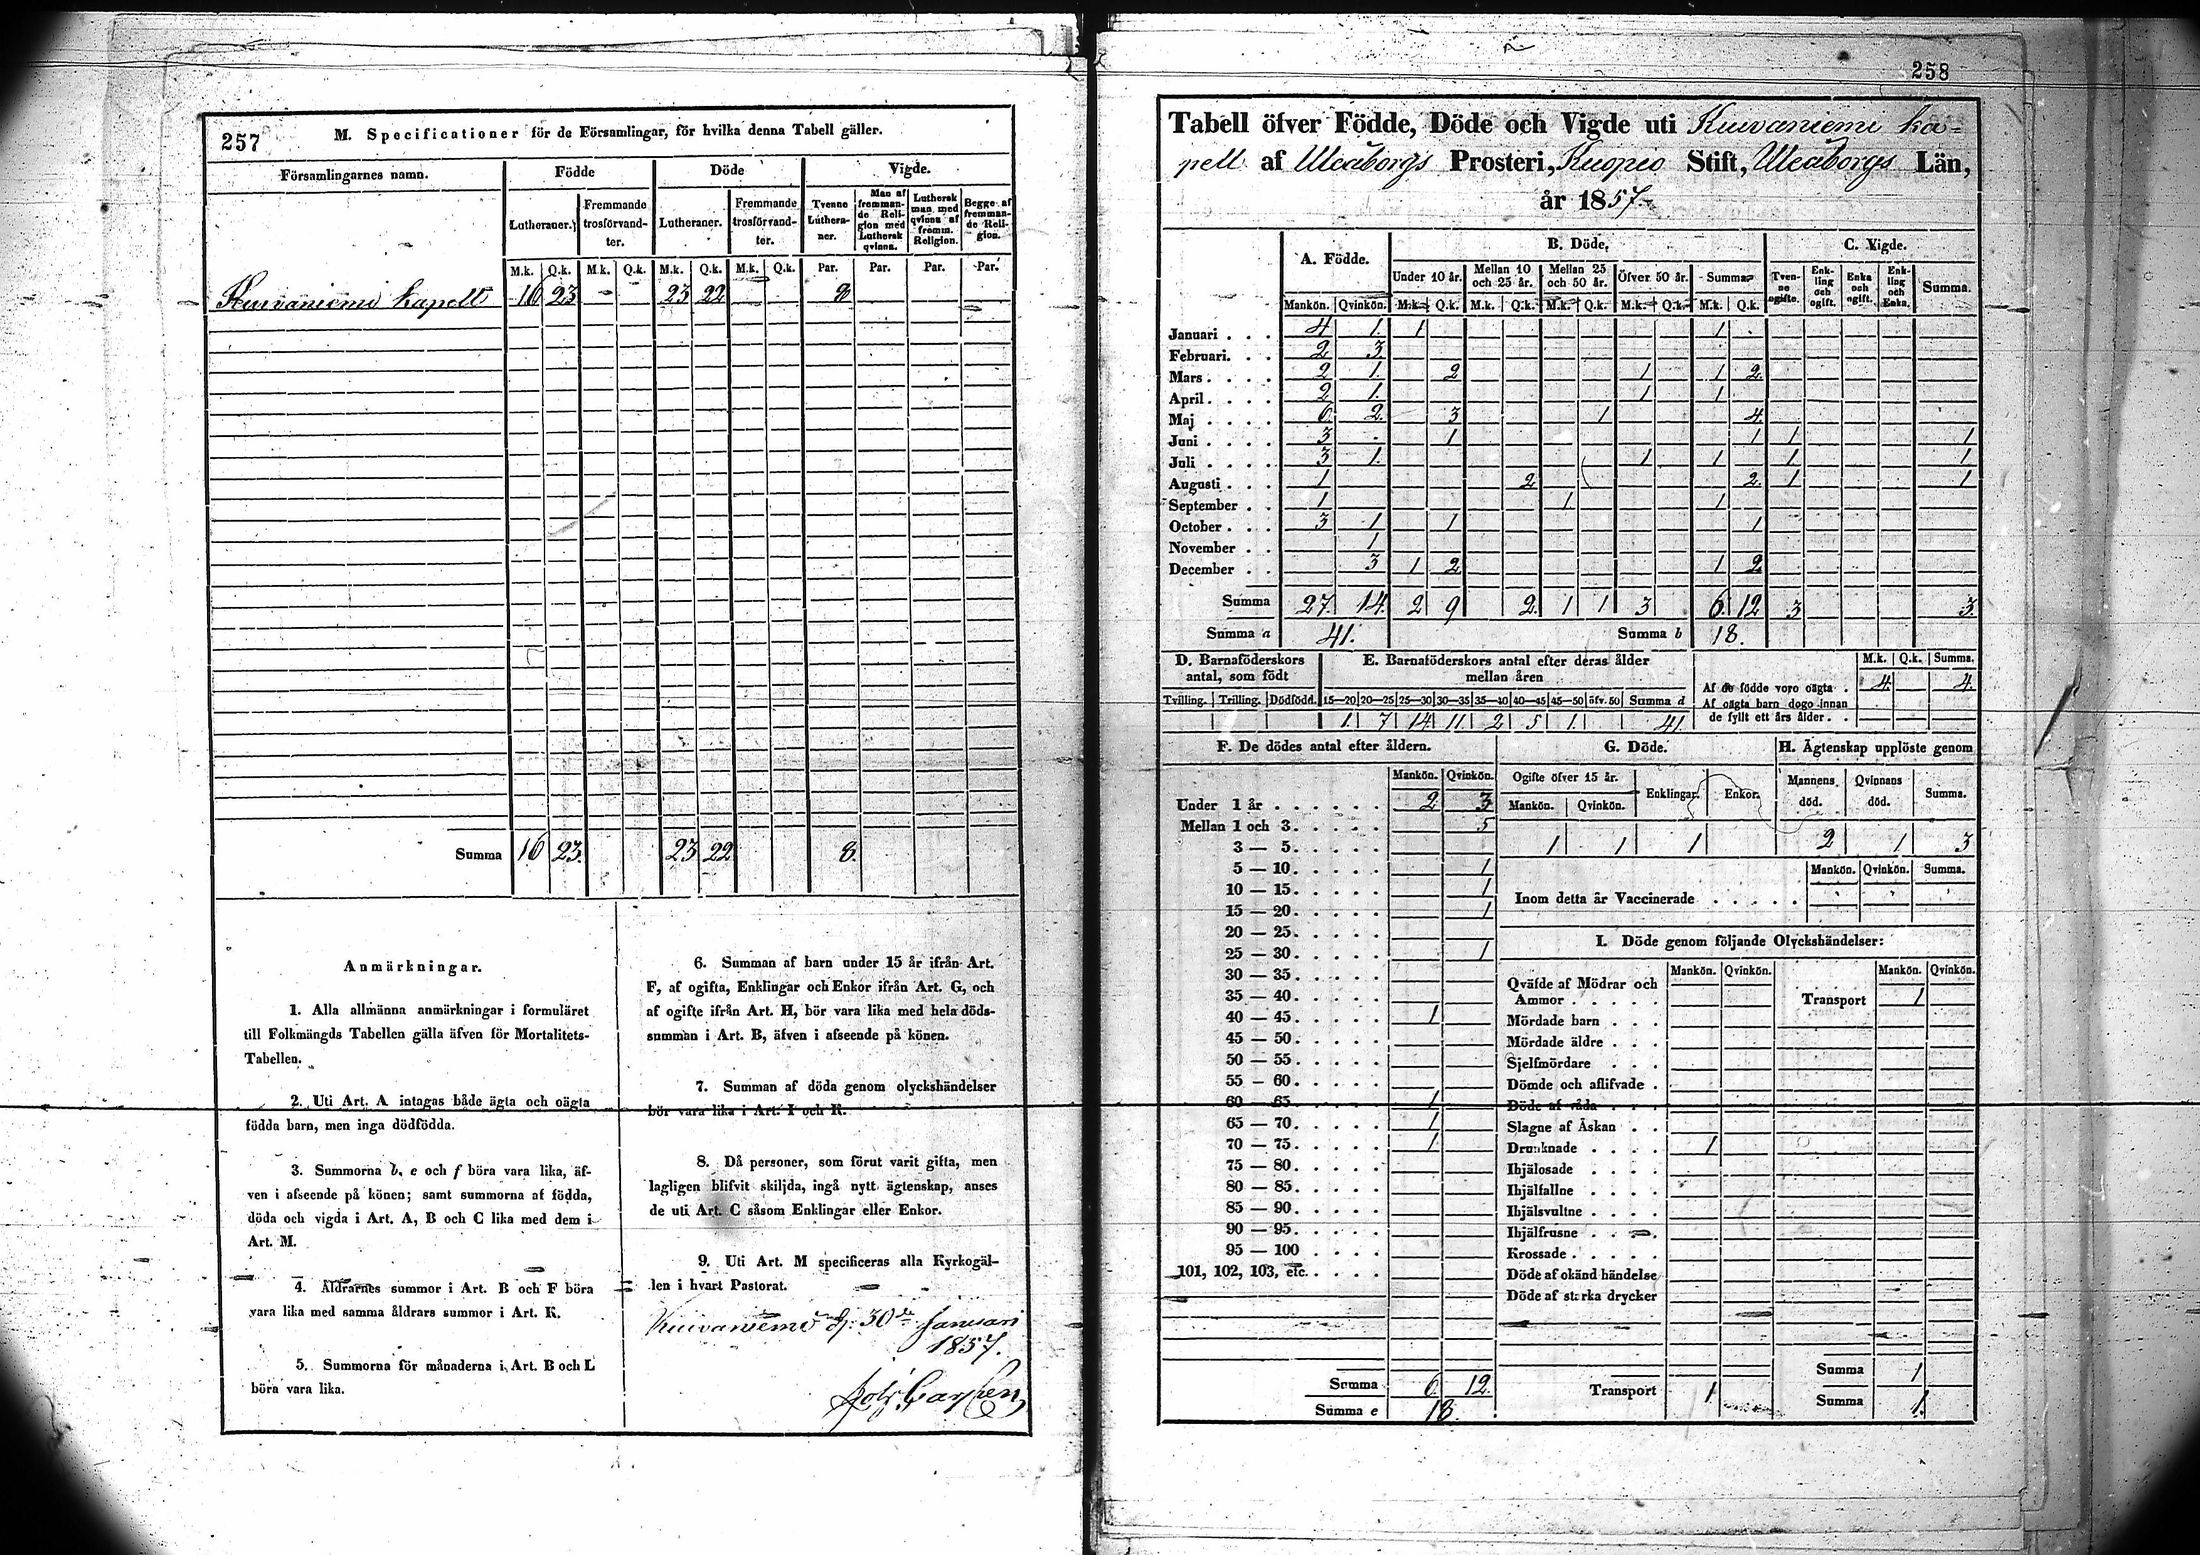 257
M. Specificationer för de Församlingar, för hvilka denna Tabell gäller.
Församlingarnes namn.
Födde
Döde
Vigde.
Lutheraner.
Fremmande trosförvandter.
Lutheraner.
Fremmande trosförvandter.
Tvenne Lutheraner.
Man af fremmande Religion med Luthersk qvinna.
Luthersk man med qvinna af fremm. Religion.
Begge af fremmande Religion.
M.k. Q.k. M.k. Q.k. M.k. Q.k. M.k. Q.k. Par. Par. Par. Par.
Kuivaniemi kapell 16 23 - 23 22 8
Summa 16 23. 23 22 8.
Anmärkningar.
1. Alla allmänna anmärkningar i formuläret
till Folkmängds Tabellen gälla äfven för Mortalitets-
Tabellen.
2. Uti Art. A intagas både ägta och oägta
födda barn, men inga dödfödda.
3. Summorna b, e och f böra vara lika, äf-
ven i afseende på könen; samt summorna af födda,
döda och vigda i Art. A, B och C lika med dem i
Art. M.
4. Åldrarnes summor i Art. B och F böra
vara lika med samma åldrars summor i Art. K.
5. Summorna för månaderna i Art. B och L
böra vara lika.
6. Summan af barn under 15 år ifrån Art.
F, af ogifta, Enklingar och Enkor ifrån Art. G, och
af ogifte ifrån Art. H, bör vara lika med hela döds-
summan i Art. B, äfven i afseende på könen.
7. Summan af döda genom olyckshändelser
bör vara lika i Art. I och K.
8. Då personer, som förut varit gifta, men
lagligen blifvit skiljda, ingå nytt ägtenskap, anses
de uti Art. C såsom Enklingar eller Enkor.
9. Uti Art. M specificeras alla Kyrkogäl-
len i hvart Pastorat.
Kuivaniemi d. 30de Januari
1857.
258
Tabell öfver Födde, Döde och Vigde uti Kuivaniemi ka-
pell af Uleåborgs Prosteri, Kuopio Stift, Uleåborgs Län,
år 1857.
A. Födde.
B. Döde.
C. Vigde.
Under 10 år. Mellan 10 och 25 år. Mellan 25 och 50 år. Öfver 50 år. Summa
Tvenne ogifte. Enkling och ogift. Enka och ogift. Enkling och Enka. Summa.
Mankön. Qvinkön. M.k. Q.k. M.k. Q.k. M.k. Q.k. M.k. Q.k. M.k. Q.k.
Januari . . . 4 1. 1 1
Februari. . . 2 3.
Mars . . . . 2 1. 2 1 1 2.
April . . . . 2 1. 1 1
Maj . . . . 6. 2. 3 1 4.
Juni . . . . 3 - 1 1 1 1
Juli . . . . 3 1. 1 1 1 1
Augusti . . . 1 2 2. 1 1
September . . 1 1. 1
October . . . 3 1 1 1
November . . 1
December . . 3 1 2 1 2
Summa 27. 14. 2 9 2. 1 1 3 6. 12 3 3.
Summa a 41. Summa b 18.
D. Barnaföderskors antal, som födt
E. Barnaföderskors antal efter deras ålder mellan åren
M.k. Q.k. Summa.
Tvilling. Trilling. Dödfödd. 15—20 20—25 25—30 30—35 35—40 40—45 45—50 öfv. 50 Summa d
1 7 14 11 2 5 1 41.
Af de födde voro oägta . 4. 4.
Af oägta barn dogo innan
de fyllt ett års ålder . .
F. De dödes antal efter åldern.
Mankön. Qvinkön.
Under 1 år . . . . . . 2 3
Mellan 1 och 3. . . . . 5
3 — 5. . . . .
5 — 10. . . . . 1
10 — 15. . . . . 1
15 — 20. . . . . 1
20 — 25. . . . .
25 — 30. . . . . 1
30 — 35. . . . .
35 — 40. . . . .
40 — 45. . . . . 1
45 — 50. . . . .
50 — 55. . . . .
55 — 60. . . . .
60 — 65. . . . . 1
65 — 70. . . . . 1
70 — 75. . . . . 1
75 — 80. . . . .
80 — 85. . . . .
85 — 90. . . . .
90 — 95. . . . .
95 — 100 . . . .
101, 102, 103, etc. . . . .
Summa 6. 12.
Summa e 18.
G. Döde.
Ogifte öfver 15 år. Enklingar. Enkor.
Mankön. Qvinkön.
1 1 1
H. Ägtenskap upplöste genom
Mannens död. Qvinnans död. Summa.
2 1 3
Mankön. Qvinkön. Summa.
Inom detta år Vaccinerade . . . . .
I. Döde genom följande Olyckshändelser:
Mankön. Qvinkön. Mankön. Qvinkön.
Qväfde af Mödrar och
Ammor . . . . . Transport 1
Mördade barn . . .
Mördade äldre . . .
Sjelfmördare . . .
Dömde och aflifvade .
Döde af våda . . .
Slagne af Åskan . .
Drunknade . . . . 1
Ihjälosade . . . .
Ihjälfallne . . . .
Ihjälsvultne . . . .
Ihjälfrusne . . . .
Krossade . . . . .
Döde af okänd händelse
Döde af starka drycker
Summa 1
Transport 1 Summa 1.